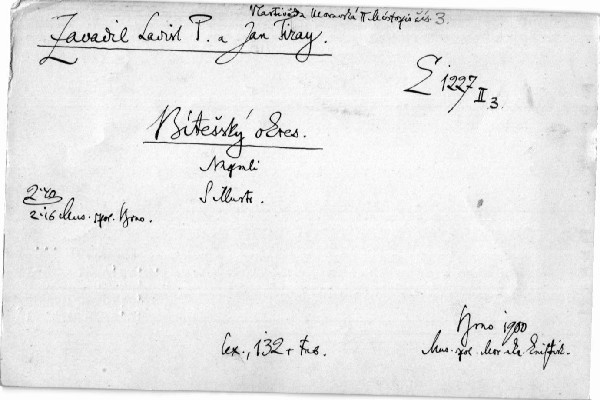 Vlastivěda Moravská II Místopis čís. 3.
Zavadil Ladisl P. a Jan Tiray.
1227 II 3.
Bítešský okres.
Napsali
S illustr.
2·70
2·16 Mus. spol. Brno.
Brno 1900
Lex., 132 +
Mus. spol.